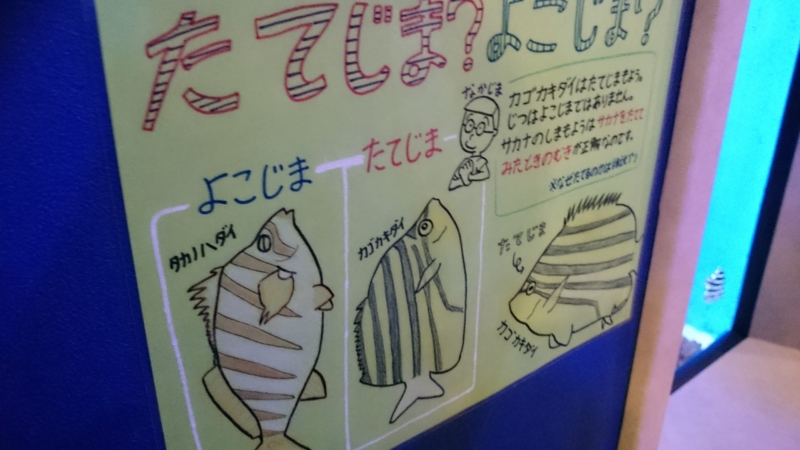 たてじま?よこじま?
なかじま
カゴカキダイはたてじまもよう。
じつはよこじまではありません。
サカナのしまもようはサカナをたてて
みたときのむきが正解なのです。
たてじま
よこじま
タカノハダイ
カゴカキダイ
たてじま
カゴカキダイ